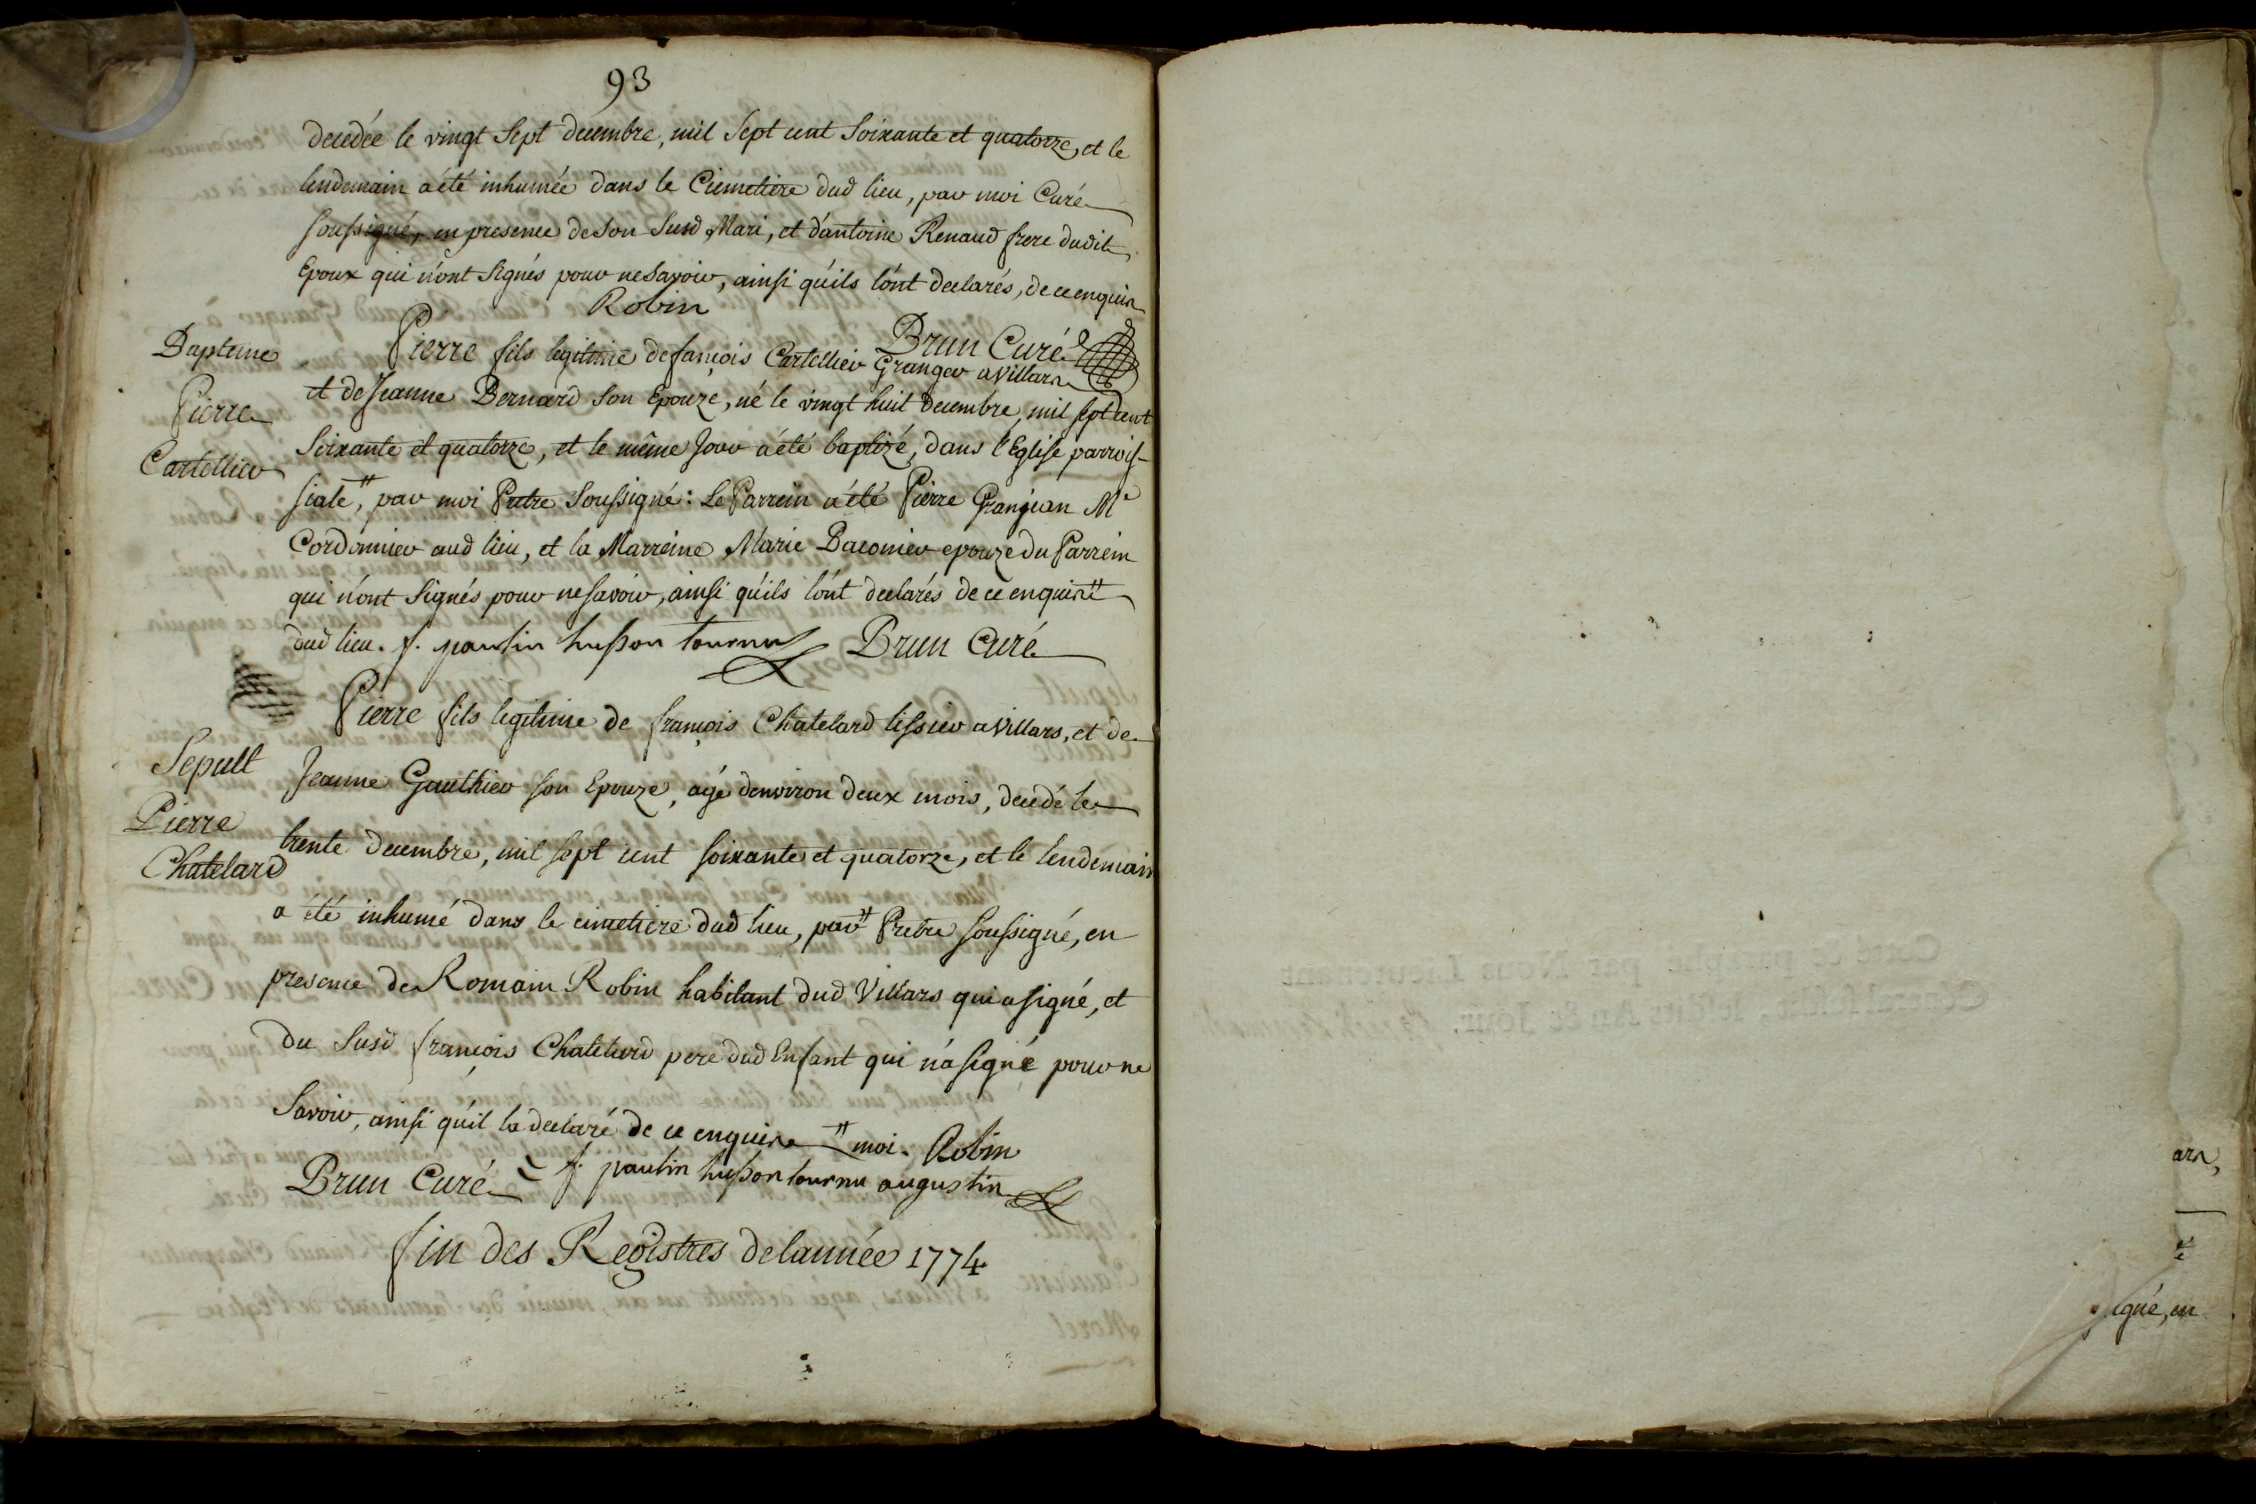 93
decedée le vingt Sept decembre, mil Sept cent Soixante et quatorze, et le
lendemain a été inhumée dans le Cimetiere dud lieu, par moi Curé
soussigné, en presence de Son Susd Mari, et d'antoine Renaud frere dudit
Epoux qui n'ont Signés pour ne Savoir, ainsi qu'ils l'ont declarés, de ce enquis
Robin
Brun Curé
Bapteme
Pierre
Cartellier
Pierre fils legitime de françois Cartellier Granger a Villars
et de Jeanne Bernard Son Epouze, né le vingt huit Decembre, mil sept cent
Soixante et quatorze, et le même Jour a été baptizé, dans l'Eglise parrois-
siale", par moi Pretre Soussigné: Le Parrein a été Pierre Granjean Me
Cordonnier aud lieu, et la Marreine Marie Daconier epouze du Parrein
qui n'ont Signés pour ne Savoir, ainsi qu'ils l'ont declarés de ce enquis "
dud lieu. f. paulin husson tournu Brun Curé
Sepult
Pierre
Chatelard
Pierre fils legitime de françois Chatelard tissier a Villars, et de
Jeanne Gauthier son Epouze, agé denviron deux mois, decedé le
trente Decembre, mil sept cent soixante et quatorze, et le lendemain
a été inhumé dans le cimetiere dud lieu, par " Pretre soussigné, en
presence de Romain Robin habitant dud Villars qui a signé, et
du Susd françois Chatelard pere dud Enfant qui n'a signé pour ne
Savoir, ainsi qu'il la declaré de ce enquis " moi. Robin
Brun Curé f. paulin husson tournu augustin
fin des Registres de lannée 1774
ars,
igné, en